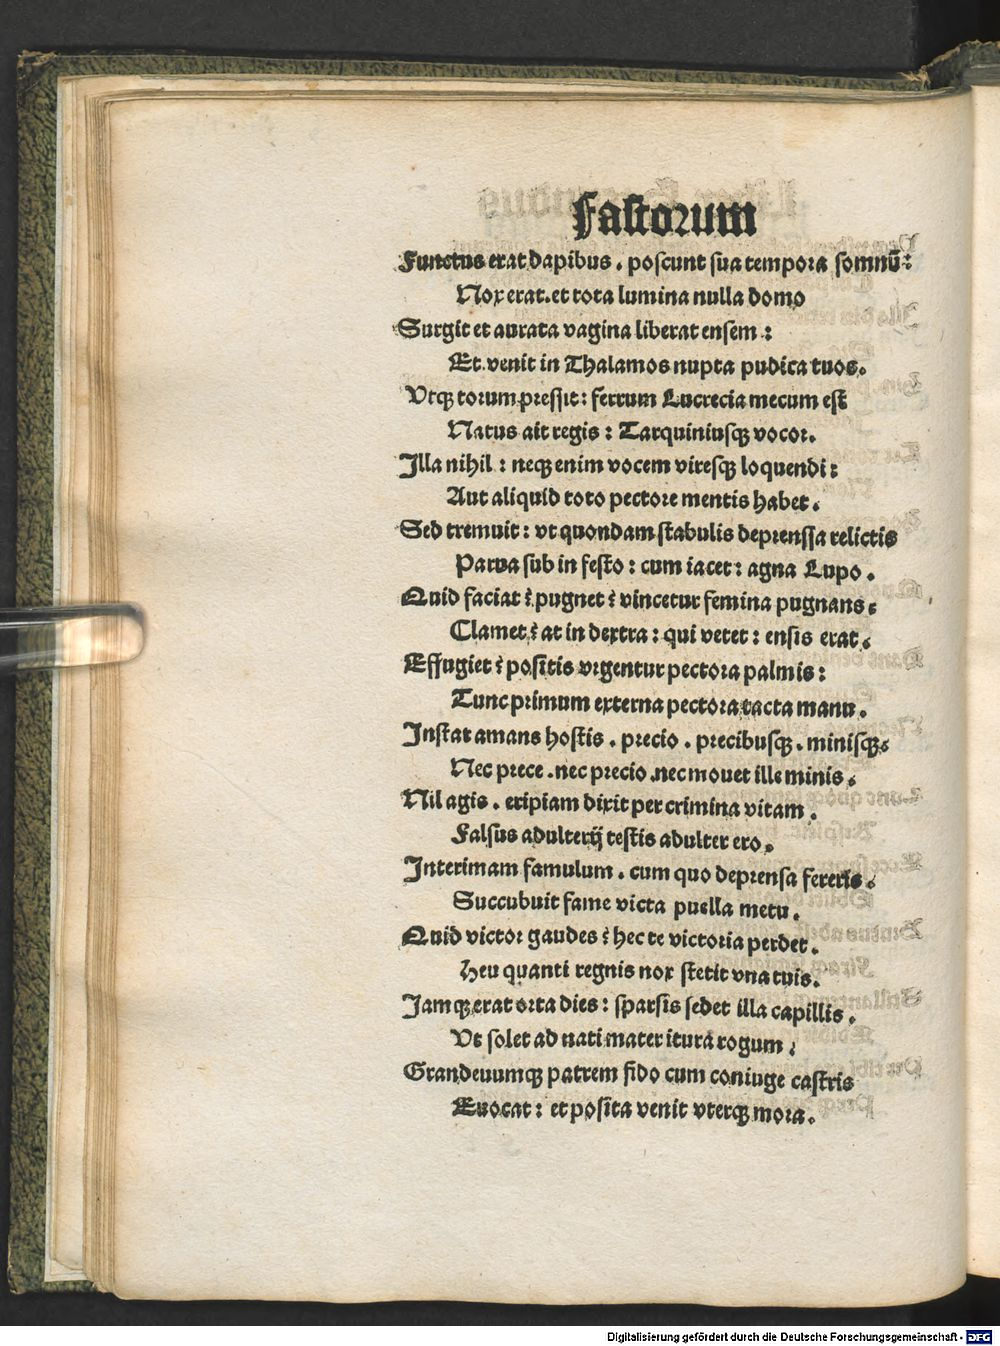 Fastorum
Functus erat dapibus . poscunt sua tempora somnū:
Nox erat . et tota lumina nulla domo
Surgit et aurata vagina liberat ensem :
Et venit in Thalamos nupta pudica tuos.
Vtqꝫ torum pressit : ferrum Lucrecia mecum est
Natus ait regis : Tarquiniusqꝫ vocor.
Illa nihil : neqꝫ enim vocem viresqꝫ loquendi :
Aut aliquid toto pectore mentis habet .
Sed tremuit : vt quondam stabulis deprenssa relictis
Parua sub in festo : cum iacet : agna Lupo .
Quid faciat ? pugnet ? vincetur femina pugnans .
Clamet ? at in dextra : qui vetet : ensis erat .
Effugiet ? positis vrgentur pectora palmis :
Tunc primum externa pectora tacta manu .
Instat amans hostis . precio . precibusqꝫ . minisqꝫ .
Nec prece . nec precio . nec mouet ille minis .
Nil agis . eripiam dixit per crimina vitam .
Falsus adulterij testis adulter ero .
Interimam famulum . cum quo deprensa fereris .
Succubuit fame victa puella metu .
Quid victor gaudes ? hec te victoria perdet .
Heu quanti regnis nox stetit vna tuis .
Jamqꝫ erat orta dies : sparsis sedet illa capillis .
Vt solet ad nati mater itura rogum .
Grandeuumqꝫ patrem fido cum coniuge castris
Euocat : et posita venit vterqꝫ mora .
Digitalisierung gefördert durch die Deutsche Forschungsgemeinschaft - DFG